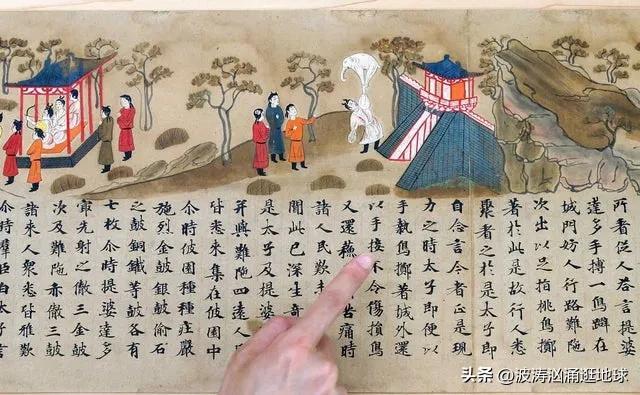 所看從人荅言提婆
達多手搏一鳥躃在
城門妨人行路難陁
次出以足指桃鳥擲
著於此是故行人悉
聚看之於是太子即
自念言今者正是現
力之時太子即便以
手執鳥擲著城外還
以手接不令傷損鳥
又還穌苦痛時
諸人民歎未
聞此已深生奇
是太子及提婆
并與難陁四遠人
皆悉来集在彼園中
尒時彼園種種莊嚴
施烈金鼓銀鼓鍮石
之鼓銅鐵等鼓各有
七枚尒時提婆達多
最先射之徹三金鼓
次及難陁亦徹三鼓
諸来人衆悉皆雅歎
尒時羣臣白太子言
头条 @波涛汹涌逛地球